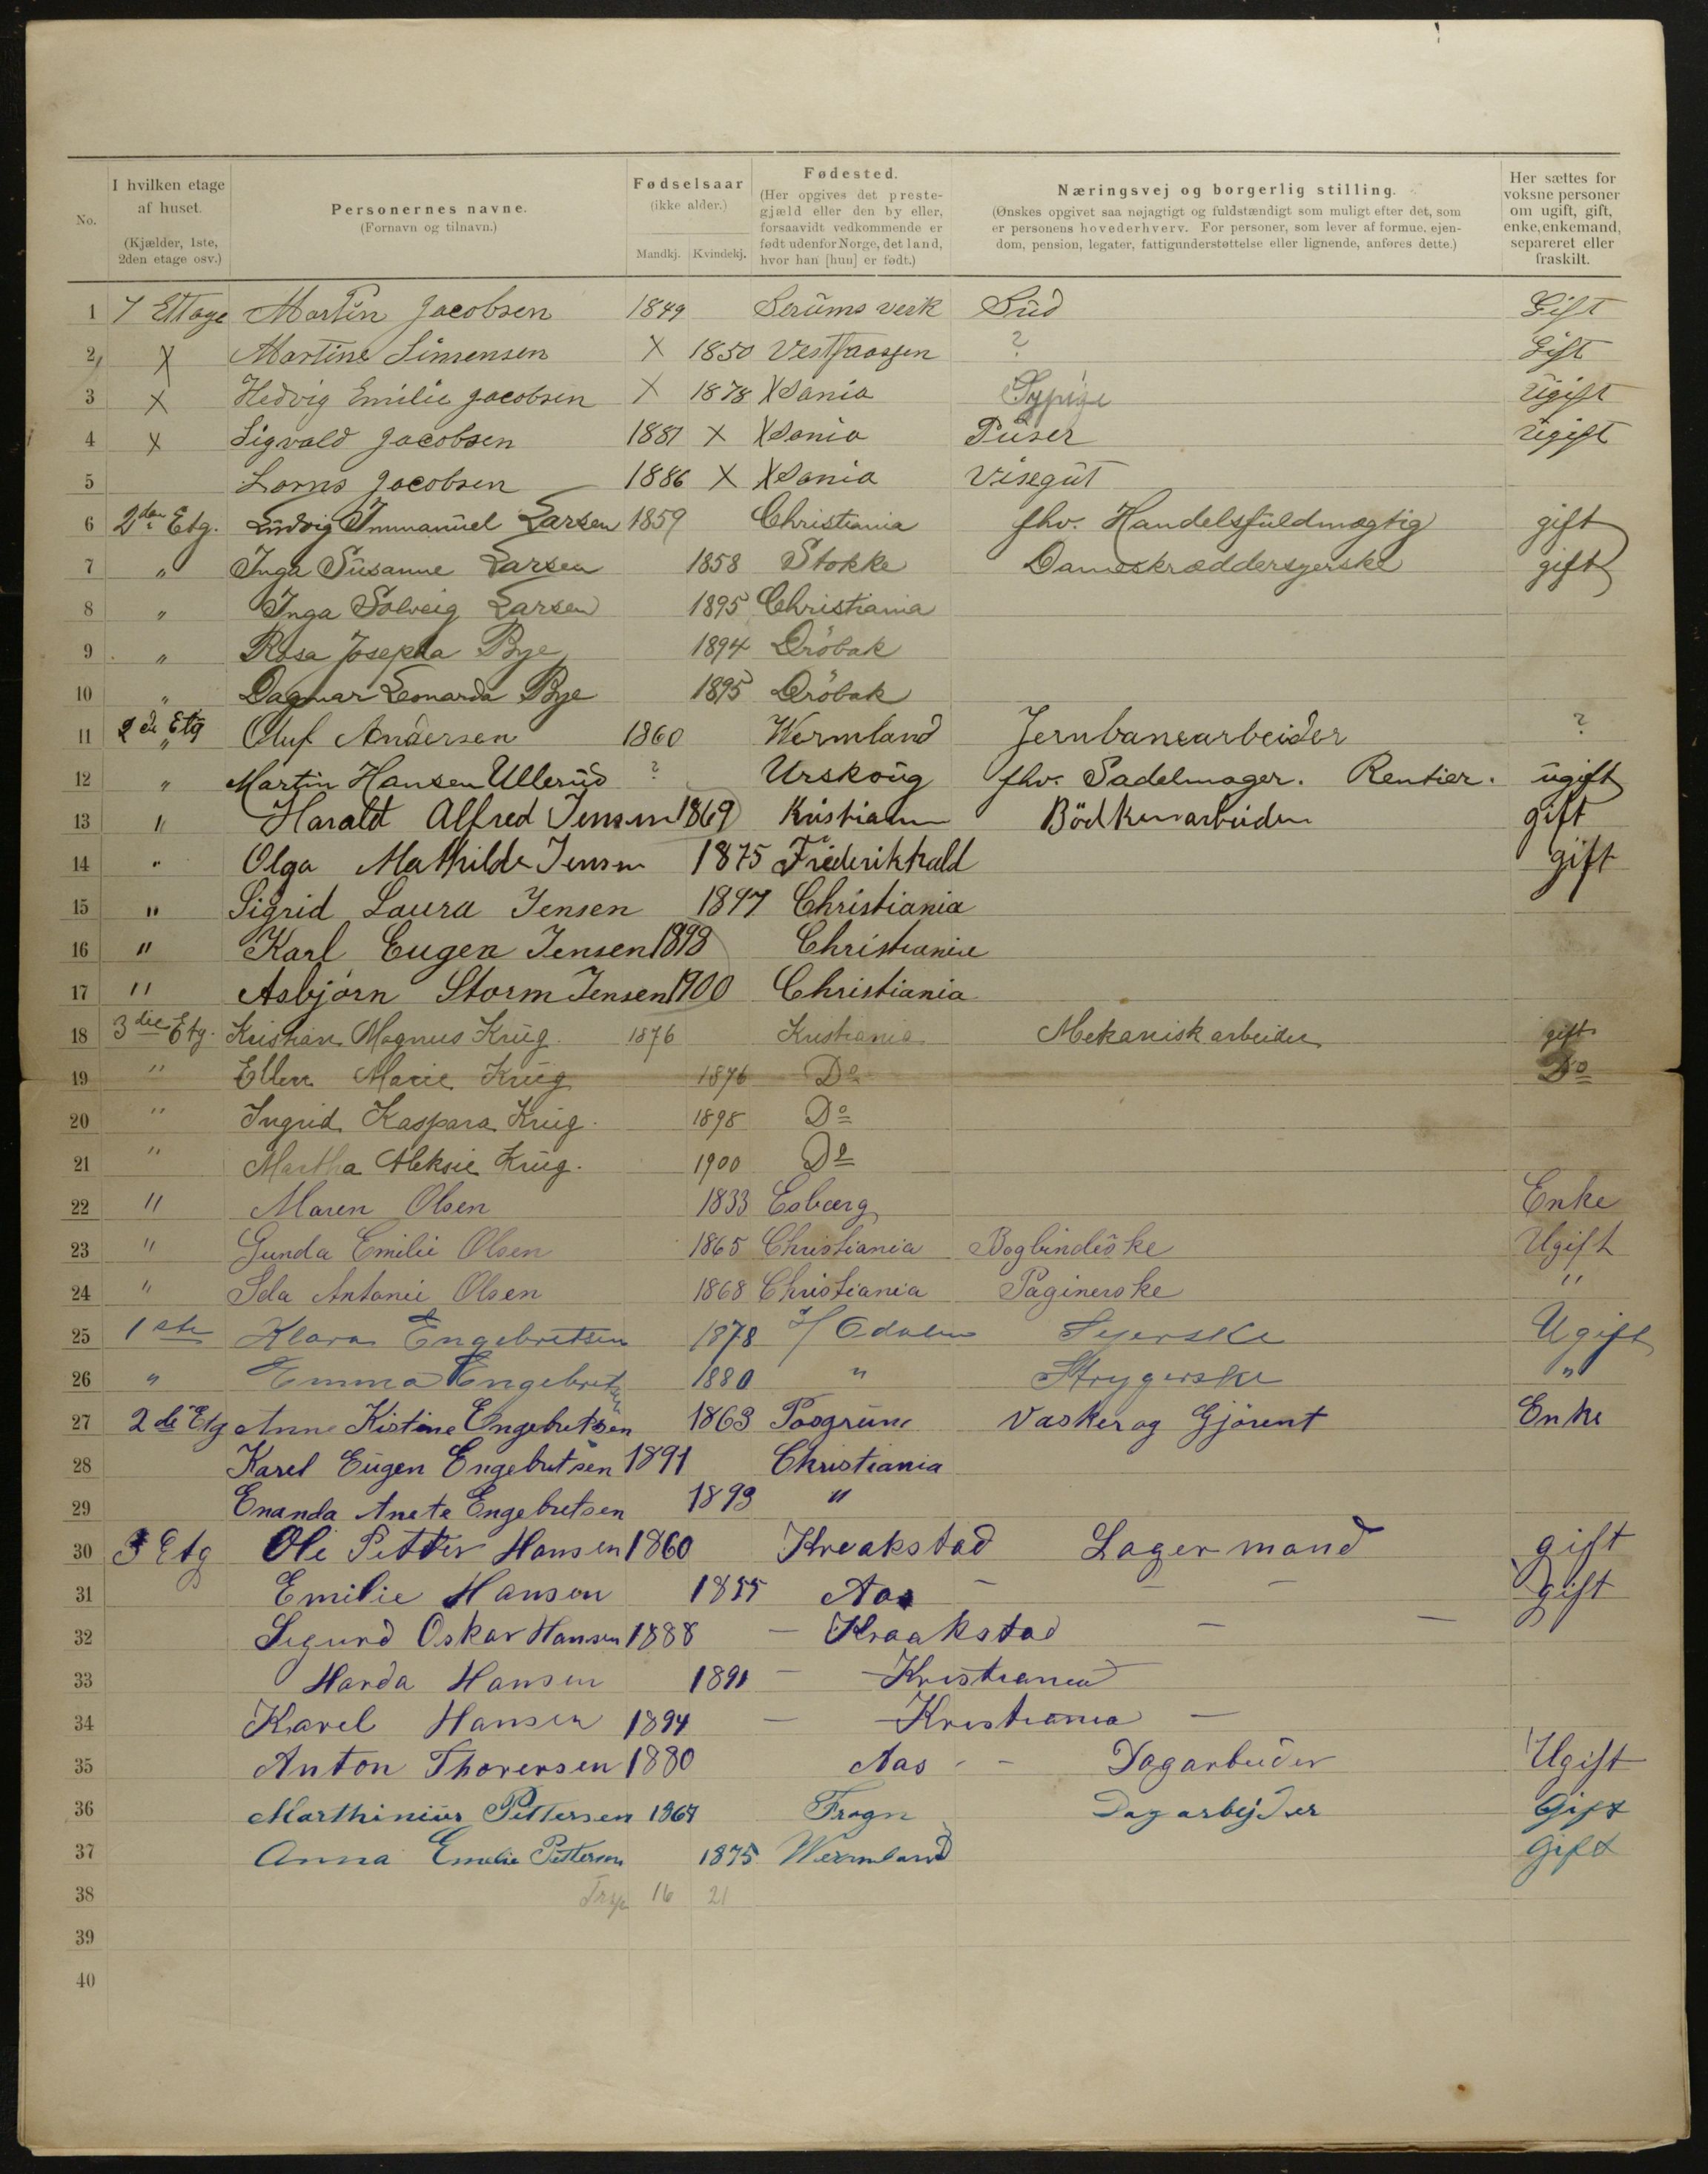 No.
I hvilken etage af huset. (Kjælder, 1ste, 2den etage osv.)
Personernes navne. (Fornavn og tilnavn.)
Fødselsaar (ikke alder.) Mandkj. Kvindekj.
Fødested. (Her opgives det prestegjæld eller den by eller, forsaavidt vedkommende er født udenfor Norge, det land, hvor han [hun] er født.)
Næringsvej og borgerlig stilling. (Ønskes opgivet saa nøjagtigt og fuldstændigt som muligt efter det, som er personens hovederhverv. For personer, som lever af formue, ejendom, pension, legater, fattigunderstøttelse eller lignende, anføres dette.)
Her sættes for voksne personer om ugift, gift, enke, enkemand, separeret eller fraskilt.
1 1 Ettage Martin Jacobsen 1849 Serums verk Gift
2 X Martine Simensen X 1850 ? Gift
3 X Hedvig Emilie Jacobsen X 1878 Xsania Sypige Ugift
4 X Sigvald Jacobsen 1881 X Xsania Puser Ugift
5 Jacobsen 1886 X Xsania Visegut
6 2den Etg. Ludvig Immanuel Larsen 1859 Christiania fhv. Handelsfuldmægtig gift
7 " Inga Susanne Larsen 1858 Stokke Dameskræddersyerske gift
8 " Inga Solveig Larsen 1895 Christiania
9 " Rosa Josepha Bye 1894 Dröbak
10 " Dagmar Leonarda Bye 1895 Dröbak
11 2de Etg " Oluf Andersen 1860 Wermland Jernbanearbeider ?
12 " Martin Hansen Ullerud ? Urskoug fhv. Sadelmager. Rentier. ugift
13 " Harald Alfred Jensen 1869 Kristiania Bödkerarbeider gift
14 " Olga Mathilde Jensen 1875 Frederikhald gift
15 " Sigrid Laura Jensen 1897 Christiania
16 " Karl Eugen Jensen 1898 Christiania
17 " Asbjørn Storm Jensen 1900 Christiania
18 3die Etg. Kristian Magnus Krug. 1876 Kristiania Mekanisk arbeider gift
19 " Ellen Marie Krug 1876 Do Do
20 " Ingrid Kaspara Krug. 1898 Do
21 " Martha Aleksie Krug. 1900 Do
22 " Maren Olsen 1833 Enke
23 " Gunda Emilie Olsen 1865 Christiania Bogbinderske Ugift
24 " Ida Antonie Olsen 1868 Christiania Paginerske "
25 1ste Klara Engebretsen 1878 Syerske Ugift
26 " Emma Engebretsen 1880 " Strygerske "
27 2de Etg Anne Kistine Engebretsen 1863 Posgrun Vasker og Gjörent Enke
28 Karel Eugen Engebretsen 1891 Christiania
29 Enanda Anete Engebretsen 1893 "
30 3 Etg Ole Petter Hansen 1860 Kreakstad Lagermand gift
31 Emilie Hansen 1855 Aas - - - gift
32 Sigurd Oskar Hansen 1888 - Kraakstad - -
33 Harda Hansen 1891 - Kristiania
34 Karel Hansen 1894 - Kristiania -
35 Anton Thorersen 1880 Aas - - Dagarbeider Ugift
36 Marthinius Pettersen 1867 Frogn Dagarbejder Gift
37 Anna Emelie Pettersen 1875 Wermland Gift
38 16 21
39
40